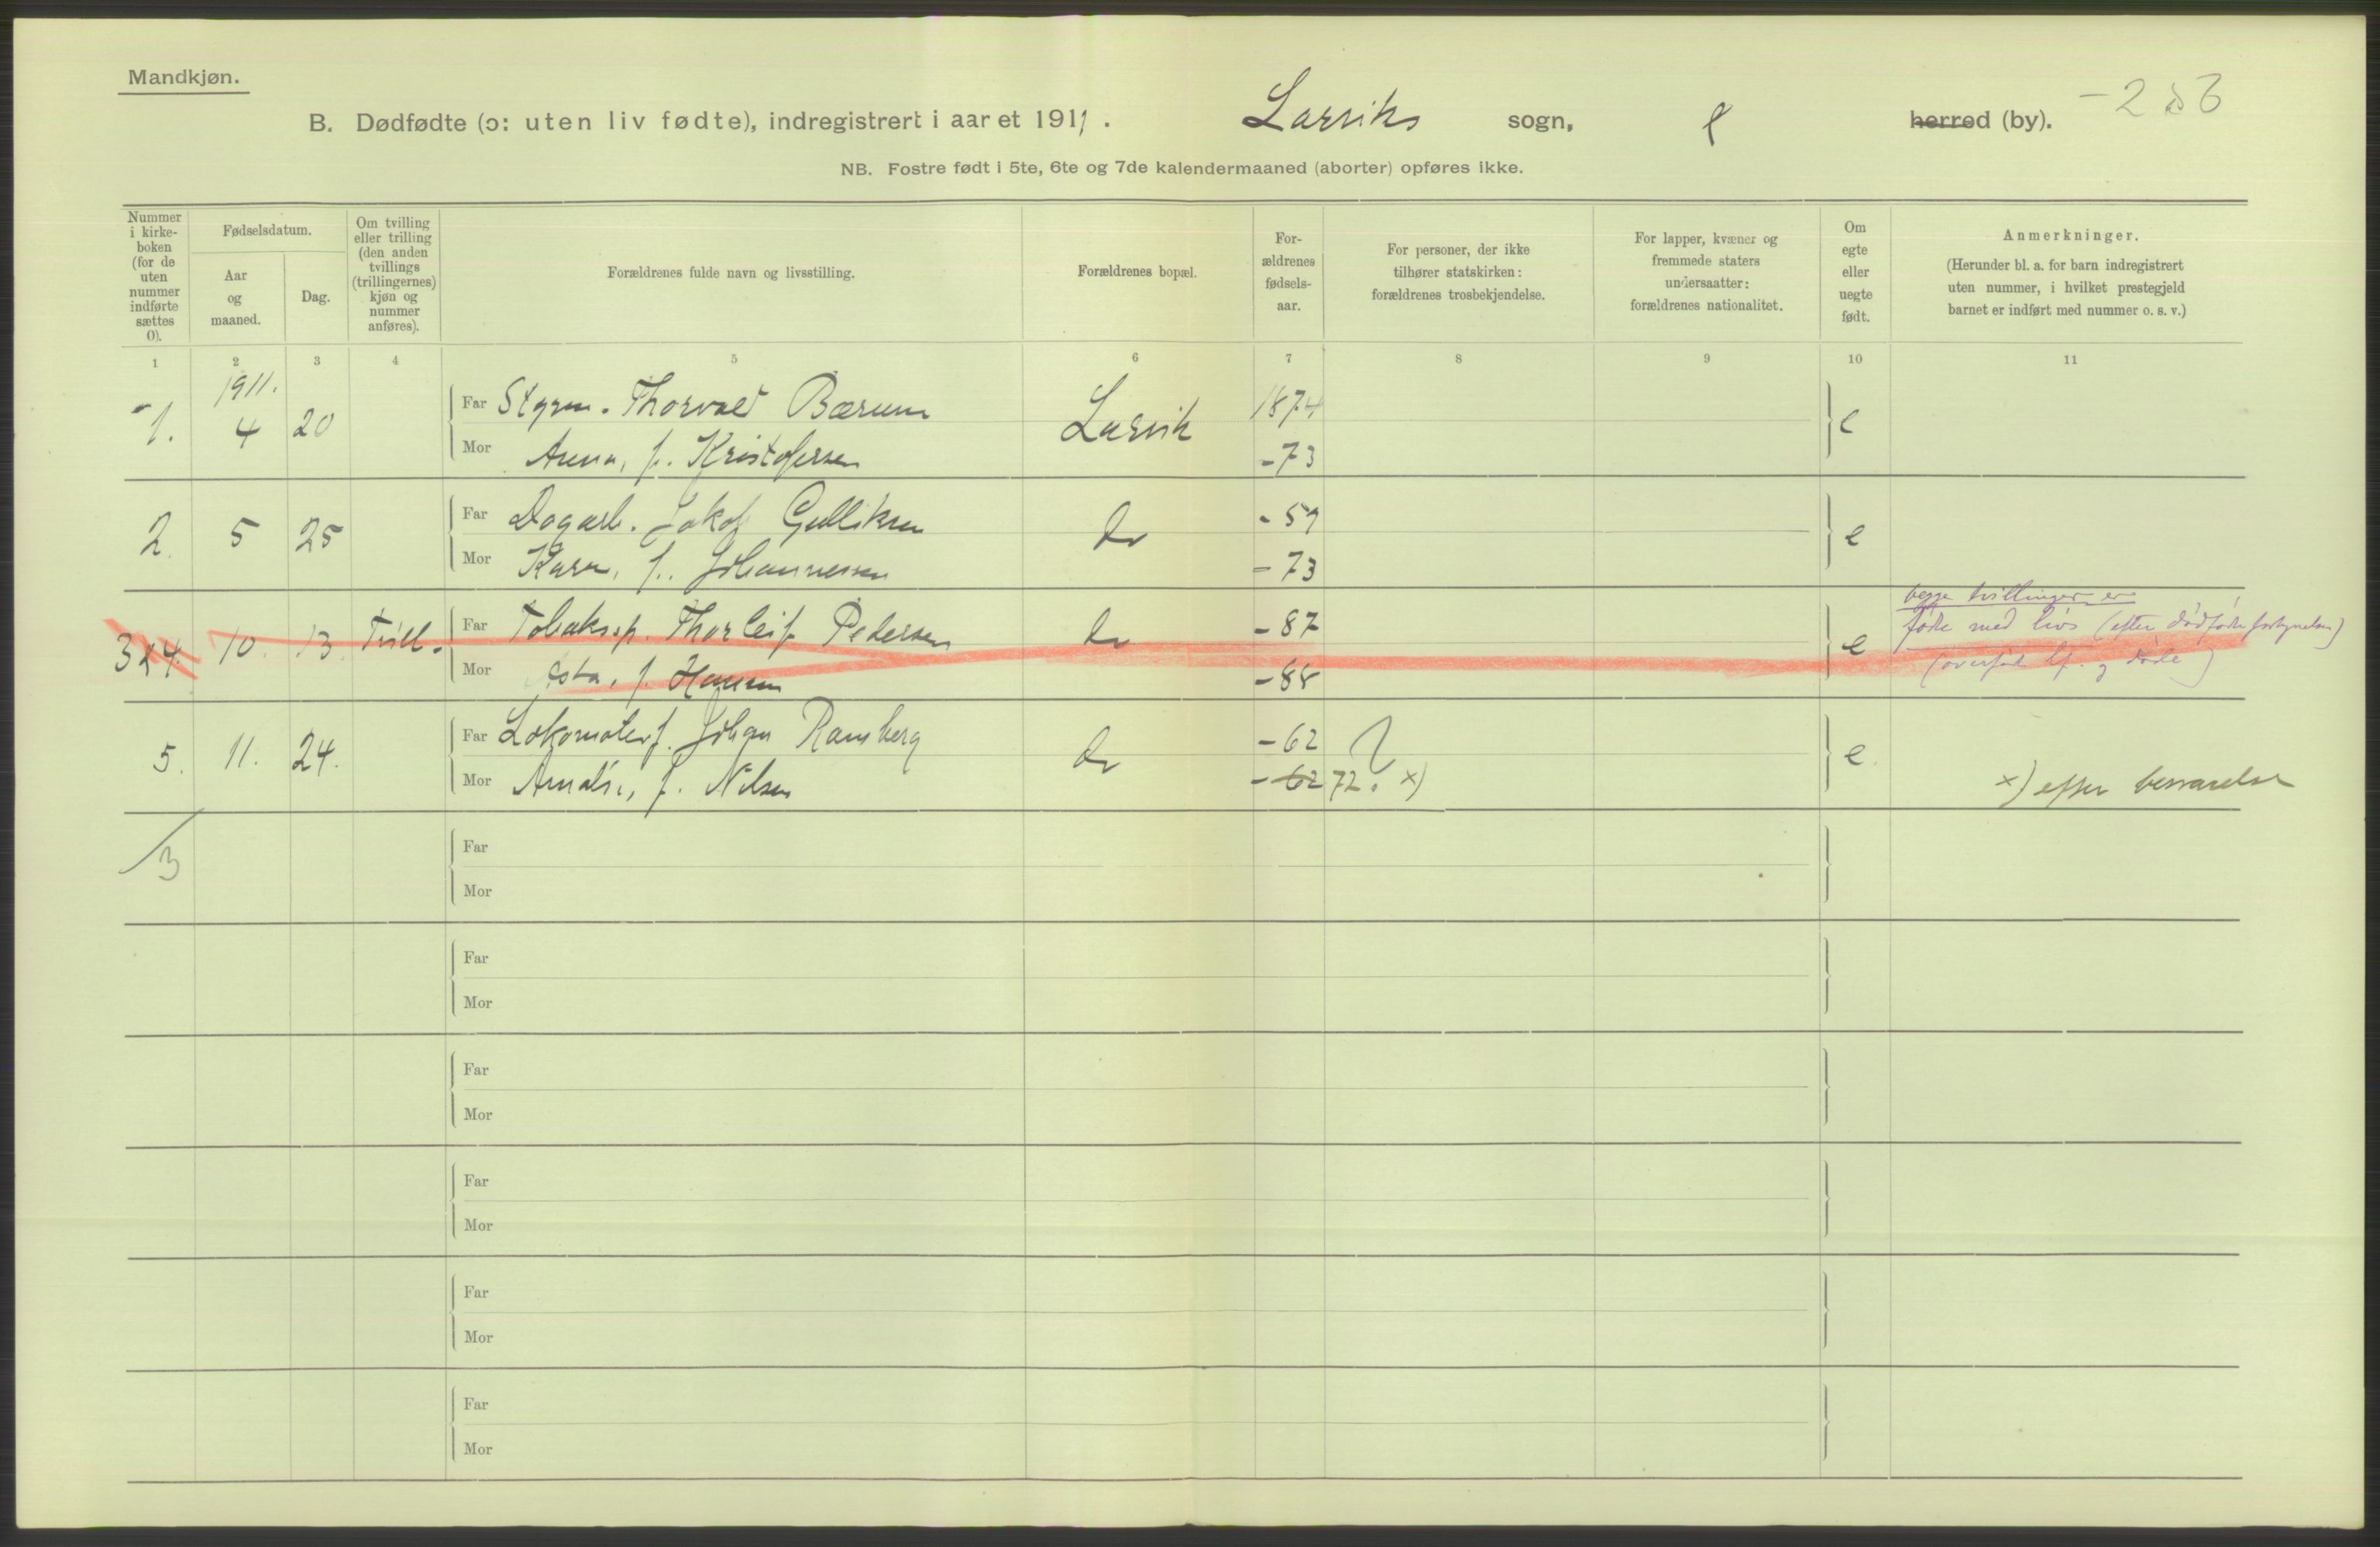 Mandkjøn.
B. Dødfødte (ɔ: uten liv fødte), indregistrert i aaret 1911. Larviks sogn, herred (by).
NB. Fostre født i 5te, 6te og 7de kalendermaaned (aborter) opføres ikke.
Nummer i kirke-boken (for de uten nummer indførte sættes 0).
Fødselsdatum.
Aar og maaned.
Dag.
Om tvilling eller trilling (den anden tvillings (trillingernes) kjøn og nummer anføres).
Forældrenes fulde navn og livsstilling.
Forældrenes bopæl.
For-ældrenes fødsels-aar.
For personer, der ikke tilhører statskirken: forældrenes trosbekjendelse.
For lapper, kvæner og fremmede staters undersaatter: forældrenes nationalitet.
Om egte eller uegte født.
Anmerkninger.
(Herunder bl. a. for barn indregistrert uten nummer, i hvilket prestegjeld barnet er indført med nummer o. s. v.)
1 2 3 4 5 6 7 8 9 10 11
1911.
1. 4 20 Far Styrm. Thorvald Bærum Larvik 1874 e
Mor Anna, f. Kristofersen -73
2. 5 25 Far Dagarb. Jakob Gulliksen do -59 e
Mor Karen, f. Johannessen -73
begge tvillinger er
3&4. 10. 13. Tvill. Far Tobakssp. Thorleif Pedersen do -87 e føtte med livs (efter dødfødte
Mor Asta, f. Hansen -88 (overført lf. og døde)
5. 11. 24. Far Lokomotivf. Johan Ramberg do -62 ? e.
Mor Amalie, f. Nilsen -62 72. x) x) efter besvarelse
3
Far
Mor
Far
Mor
Far
Mor
Far
Mor
Far
Mor
Far
Mor